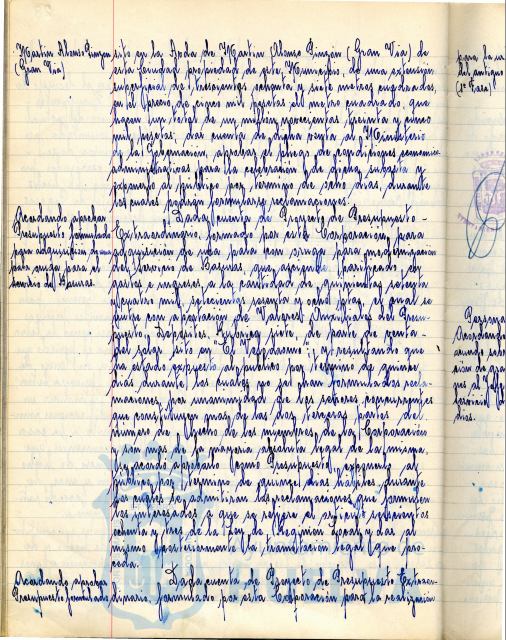 Martin Alonso Pinzon
(Gran Via)
sito en la Avda de Martin Alonso Pinzón (Gran Via) de
esta ciudad, propiedad de este Municipio, de una extensión
superficial de trescientos setenta y siete metros cuadrados,
en el precio de cinco mil pesetas el metro cuadrado, que
hacen un total de un millón ochocientas treinta y cinco
mil pesetas; dar cuenta de dicha venta al Ministerio
de la Gobernación, aprobar el pliego de condiciones economico
administrativas para la celebración de dicha subasta y
exponerlo al público por termino de ocho dias, durante
los cuales podran formularse reclamaciones.
Acordando aprobar
Presupuesto formulado
para adquisición de una
pala para el
servicio de Basuras.
Dada cuenta de Proyecto de Presupuesto
Extraordinario, formado por esta Corporación para
adquisición de una pala con oruga para modernización
del Servicio de Basuras, que asciende, tarifado en
gastos e ingresos a la cantidad de quinientas setenta
y cuatro mil, setecientas sesenta y ocho ptas, el cual se
nutre con aportación de Valores Auxiliares del Presu-
puesto, Depósitos, de parte de venta
del solar sito en "El Valdasmo", y resultando que
ha estado expuesto al publico por termino de quince
dias durante los cuales no se han formulado recla-
maciones, por unanimidad de los señores concurrentes
que constituyen mas de las dos terceras partes del
número de hecho de los miembros de la Corporación
y son mas de la mayoria absoluta legal de la misma,
fue acordado aprobarlo como Presupuesto, exponerlo al
público por termino de quince dias habiles, durante
los cuales se admitiran las reclamaciones que formulen
los interesados a que se refiere el articulo seiscientos
ochenta y tres de la Ley de Regimen Local, y dar al
mismo posteriormente la tramitación legal que pro-
ceda.
Acordando aprobar
Presupuesto formulado
Dada cuenta de Proyecto de Presupuesto Extraor-
dinario, formulado por esta Corporación para la realización
para la
del antiguo
(1ª Fase)
Acordando